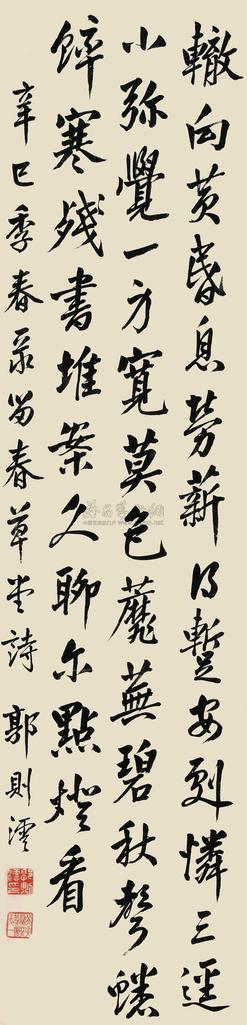 轍向黄昏息勞薪得暫安憐三逕
小弥覺一方寬莫色蘼蕪碧秋聲蟋
蟀寒殘書堆案久聊尔點燈看
辛巳季春录留春草堂詩 郭則澐